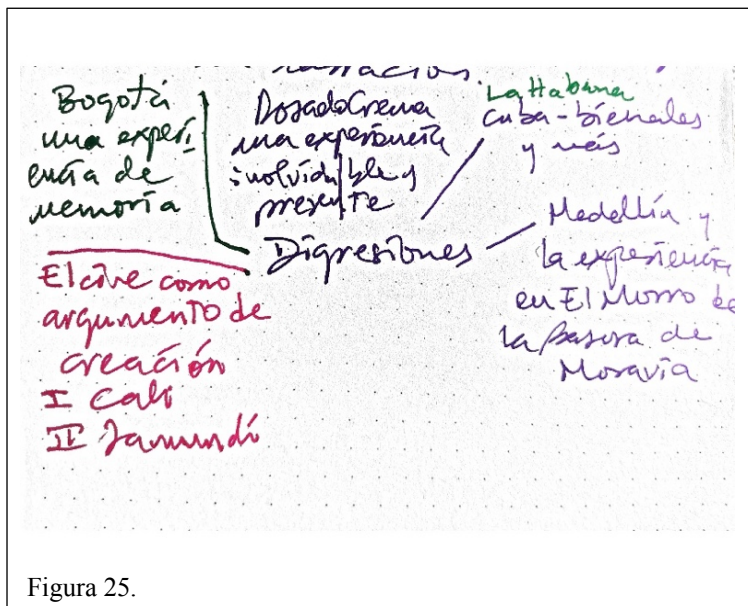 Bogotá
una experi
encia de
memoria
DosadoCrema
una experiencia
inolvidable y
presente
La Habana
Cuba-bienales
y más
Digresiones
Medellín y
la experiencia
en El Morro de
la Basura de
Moravia
El cine como
argumento de
creación
I Cali
II Jamundí
Figura 25.